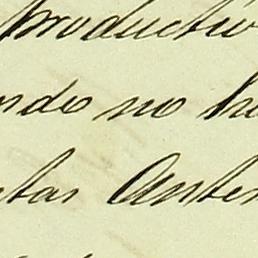 productivo
ndo no h
ntas Antes